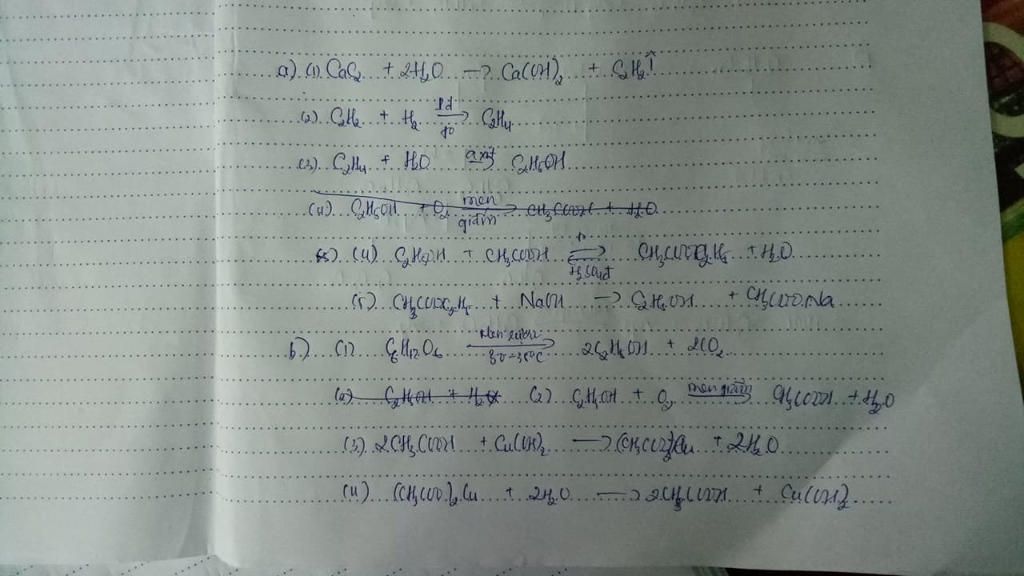 a) (1) CaC2 + 2H2O → Ca(OH)2 + C2H2↑
(2) C2H2 + H2 →(Pd, t0) C2H4
(3) C2H4 + H2O →(axit) C2H5OH
(4) C2H5OH + O2 →(men giấm) CH3COOH + H2O
(4) C2H5OH + CH3COOH ⇌(H2SO4đ) CH3COOC2H5 + H2O
(5) CH3COOC2H5 + NaOH → C2H5OH + CH3COONa
b) (1) C6H12O6 →(Men rượu, 30-35°C) 2C2H5OH + 2CO2
(2) C2H5OH + (2) C2H5OH + O2 →(men giấm) CH3COOH + H2O
(3) 2CH3COOH + Cu(OH)2 → (CH3COO)2Cu + 2H2O
(4) (CH3COO)2Cu + 2H2O → 2CH3COOH + Cu(OH)2